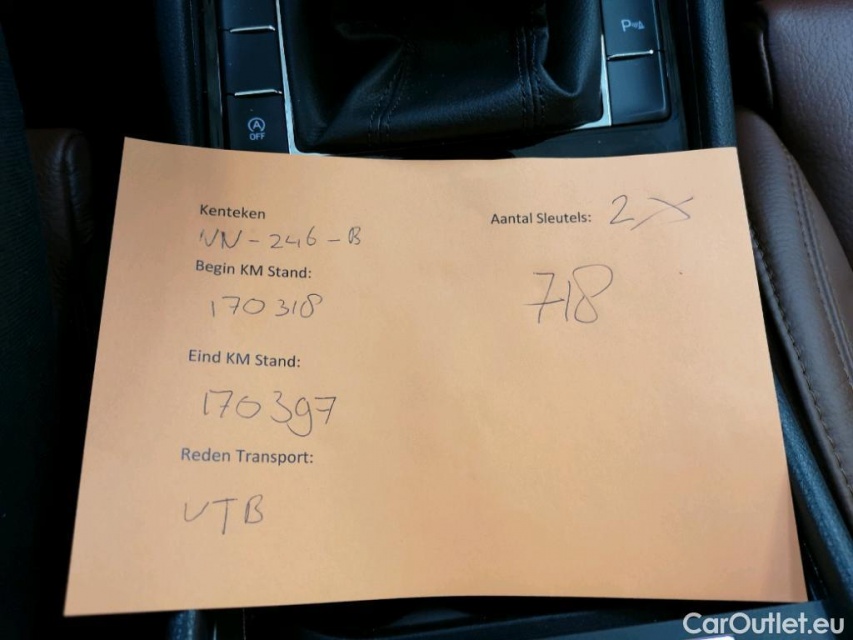 P
OFF
Kenteken
Aantal Sleutels: 2X
NN-246-B
Begin KM Stand:
170318
718
Eind KM Stand:
170397
Reden Transport:
VTB
CarOutlet.eu